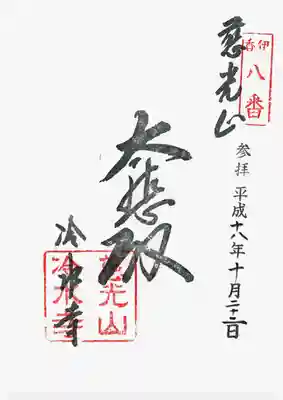 伊香
八番
慈光山
参拝 平成十八年十月
大悲殿
冷水寺
慈光山
冷水寺